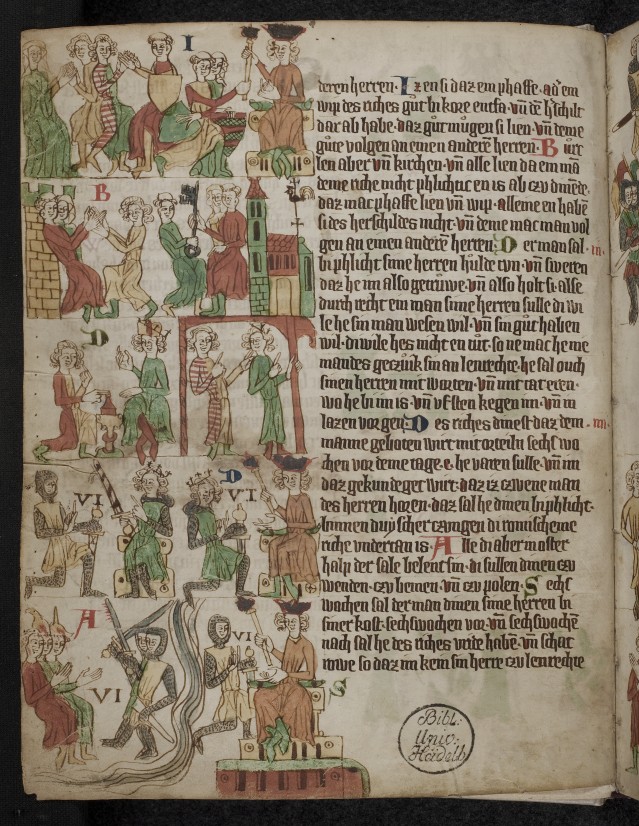 I
B
D
VI
D
VI
A
VI
VI
S
deren herren. Iz en si daz em phaffe. adˀ em
wip des riches gut bi kore entfa. vn̄ dē hˀschilt
dar ab habe. daz gut mugen si lien. vn̄ deme
gute volgen an emen anderē herren. Burc
len aber vn̄ kirchen. vn̄ alle lien da em mā
deme riche nicht phlichtic en is ab czu dinēde.
daz mac phaffe lien vn̄ wip. alleine en habē
si des herschildes nicht. vn̄ deme mac man vol
gen an einen anderē herren. Der man sal
bi phlicht sime herren hulde tun. vn̄ sweren
daz he im also getruwe. vn̄ also holt si. alse
durch recht ein man sime herren sulle di wi
le he sin man wesen wil. vn̄ sin gut haben
wil. di wile hes nicht en tut. so ne mac he nie
mandes gezuk sin an lenrechte. he sal ouch
sinen herren mit worten. vn̄ mit tat eren.
wo he bi im is. vn̄ vf sten kegen im. vn̄ in
lazen vor gen. Des riches dinest. daz dem
manne geboten wirt mit orteiln sechs wo
chen vor deme tage. e. he varen sulle. vn̄ im
daz gekundeget wirt. daz iz czwene man
des herren horen. daz sal he dinen bi phlicht.
binnen duscher czungen. di romischeme
riche vndertan is. Alle di aber in oster
halp der sale belent sin. di sullen dinen czu
wenden. czu bemen. vn̄ czu polen. Sechs
wochen sal der man dinen sime herren bi
siner kost. sechs wochen vor. vn̄ sechs wochē
nach sal he des riches vride habē. vn̄ schac
rowe so daz im kein sin herre czu lenrechte
Bibl:
Univ:
Heidelb